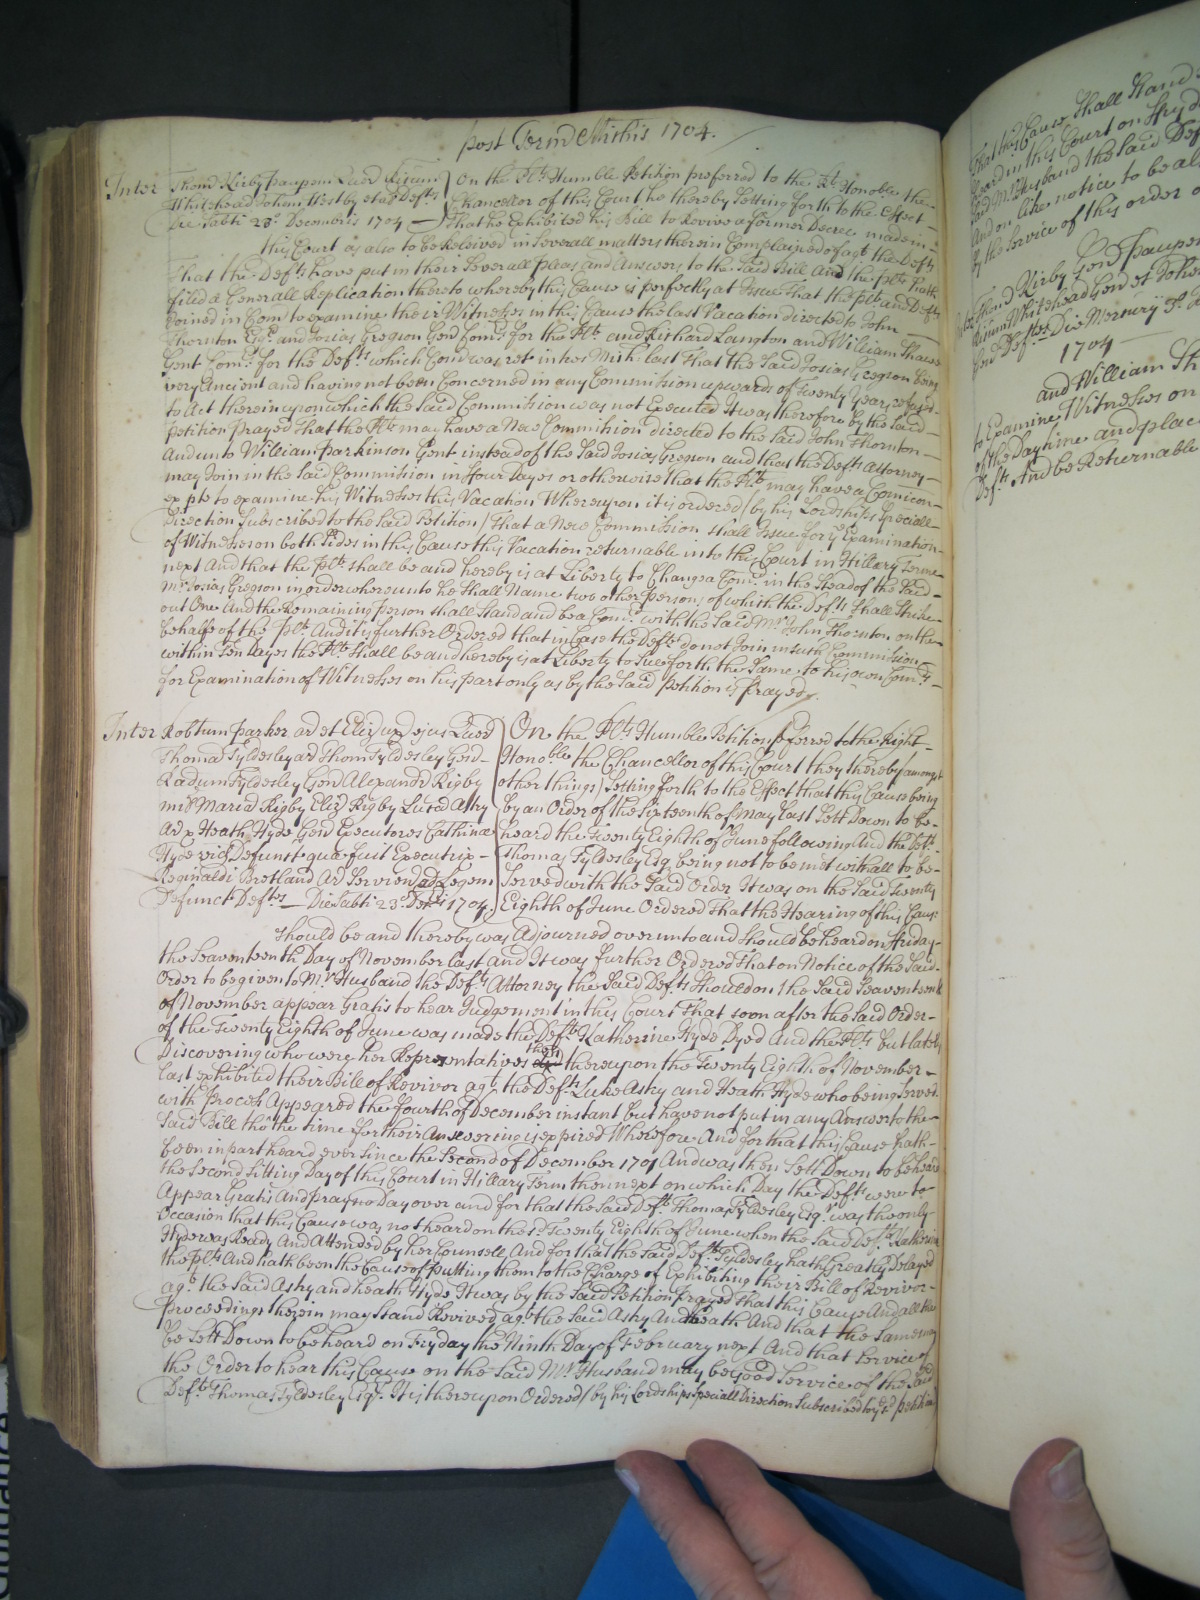 post Term Michis 1704.
Inter Thom Kirby pauperm Quer
Whitehead Johem West by et al Defts
Die Sabti 23o Decembris 1704
On the Plts Humble Petition preferred to the Rt Honoble the
Chancellor of this Court he thereby Setting forth to the effect
That he Exhibited his Bill to Revive a former Decree made in
this Court as also to be Releived in Severall matters therein Complained of agt the Defts
That the Defts have put in their Severall pleas and Answers to the Said Bill And the Plt hath
filed a Generall Replication thereto whereby this Cause is perfectly at Issue That the plt and Defts
Joined in Com to examine their Witnesses in this Cause the last Vacation directed to John
Thornton Esqr and Josias Gregson Gent Comrs for the Plt and Richard Langton and William Shawe
Gent Comrs for the Defts which Com was ret in hes Mich last That the Said Josias Gregson being
very Ancient and having not been Concerned in any Commission upwards of Twenty Years, refused
to Act therein upon which the Said Commission was not Executed It was therefore by the Said
petition prayed That the Plt may have a New Commission directed to the Said John Thornton
And unto William Parkinson Gent instead of the Said Josias Gregson and that the Defts Attorney
may Join in the Said Commission in Four Dayes or otherwise That the Plt may have a Comicon
ex pte to examine his Witnesses this Vacation Whereupon it is ordered / by his Lordships Speciall
Direction Subscribed to the Said Petition / That a New Commission shall Issue for ye Examination
of Witnesses on both Sides in this Cause this Vacation returnable into this Court in Hillary Terme
next And that the Plt shall be and hereby is at Liberty to Change a Comr in the Stead of the Said
Mr Josias Gregson in order whereunto he shall Name two other persons of which the Defts shall Strike
out One And the Remaining person shall Stand and be a Comr with the Said Mr John Thornton on the
behalfe of the Plt And it is further Ordered that in Case the Defts do not Join in such Commission
within Ten Dayes the Plt shall be and hereby is at Liberty to Sue forth the Same to his own Comrs
for Examination of Witnesses on his part only as by the Said petition is prayed
Inter Robtum Parker ar et Eliz ux ejus Quer
Thoma Tyldesley ar Thom Tyldesley Gen
Radum Tyldesley Gen Alexandr Rigby
mil Mared Rigby Eliz Rigby Lucad Asty
Ar Heath Hyde Gen Executores Catherina
Hyde vid Defunct qua fuit Executrix
Reginaldi Bretland Ar Servien ad Legem
Defunct Deftes Die Sabti 23o Decris 1704
On the Plts Humble Petition pferred to the Right
Honoble the Chancellor of this Court they thereby (amongst
other things) Setting forth to the Effect that this Cause being
by an Order of the Sixteenth of May last Sett Down to be
heard the Twenty Eighth of June following And the Deft
Thomas Tyldesley Esq being not to be met withall to be
Served with the Said Order It was on the Said Twenty
Eighth of June Ordered That the Hearing of this Cause
should be and thereby was Adjourned over unto and should be heard on Friday
the Seaventeenth Day of November last And It was further Ordered That on Notice of the Said
Order to be given to Mr Husband the Defts Attorney the Said Defts Should on the Said Seaventeenth
of November appear Gratis to hear Judgement in this Court That soon after the Said Order
of the Twenty Eighth of June was made the Deft Katherine Hyde Dyed And the Plts but lately
Discovering who were her Representatives they thereupon the Twenty Eighth of November
last exhibited their Bill of Revivor agt the Defts Luke Asty and Heath Hyde who being Served
with Process Appeared the fourth of December instant but have not put in any Answer to the
Said Bill tho the time for their Answering is expired Wherefore And for that this Cause hath
been in part heard ever Since the Second of December 1701 And was then Sett Down to be heard
the Second Sitting Day of this Court in Hillary Term then next on which Day the Defts were to
Appear Gratis And pray no Day over and for that the Said Deft Thomas Tyldesley Esqr was the only
Occasion that this Cause was not heard on the sd Twenty Eighth of June when the Said Deft Katherin
Hyde was Ready And Attended by her Counsell And for that the Said Deft Tyldesley hath Greatly Delayed
the Plts And hath been the Cause of putting them to the Charge of Exhibiting their Bill of Revivor
agt the Said Asty and heath Hyde It was by the Said Petition prayed That this Cause And all the
Proceedings therein may Stand Revived agt the Said Asty And Heath And that the Same may
be Sett Down to be heard on Fryday the Ninth Day of February next And that Service of
the Order to hear this Cause on the Said Mr Husband may be good Service of the Said
Deft Thomas Tyldesley Esqr It is thereupon Ordered / by his Lordships Speciall Direction Subscribed to ye sd petition
that this Cause shall Stand
heard in this Court on Fryd
Said Mr Husband the Said Def
And on like notice to be al
by the Service of this order
Thom Kirby Gen Pauper
Whitehead Gen et Johe
Gen Deftes Die Mercury
1704
and William Sh
to Examine Witnesses on
of the Day time and place
Defts And be Returnable